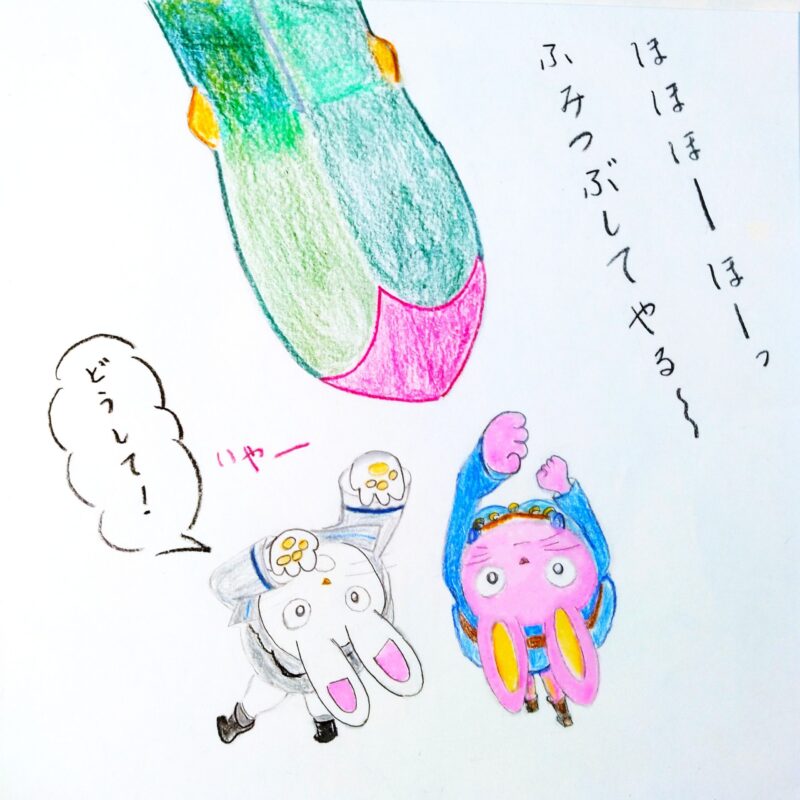 ほほほーほーっ
ふみつぶしてやる〜
どうして！
いやー